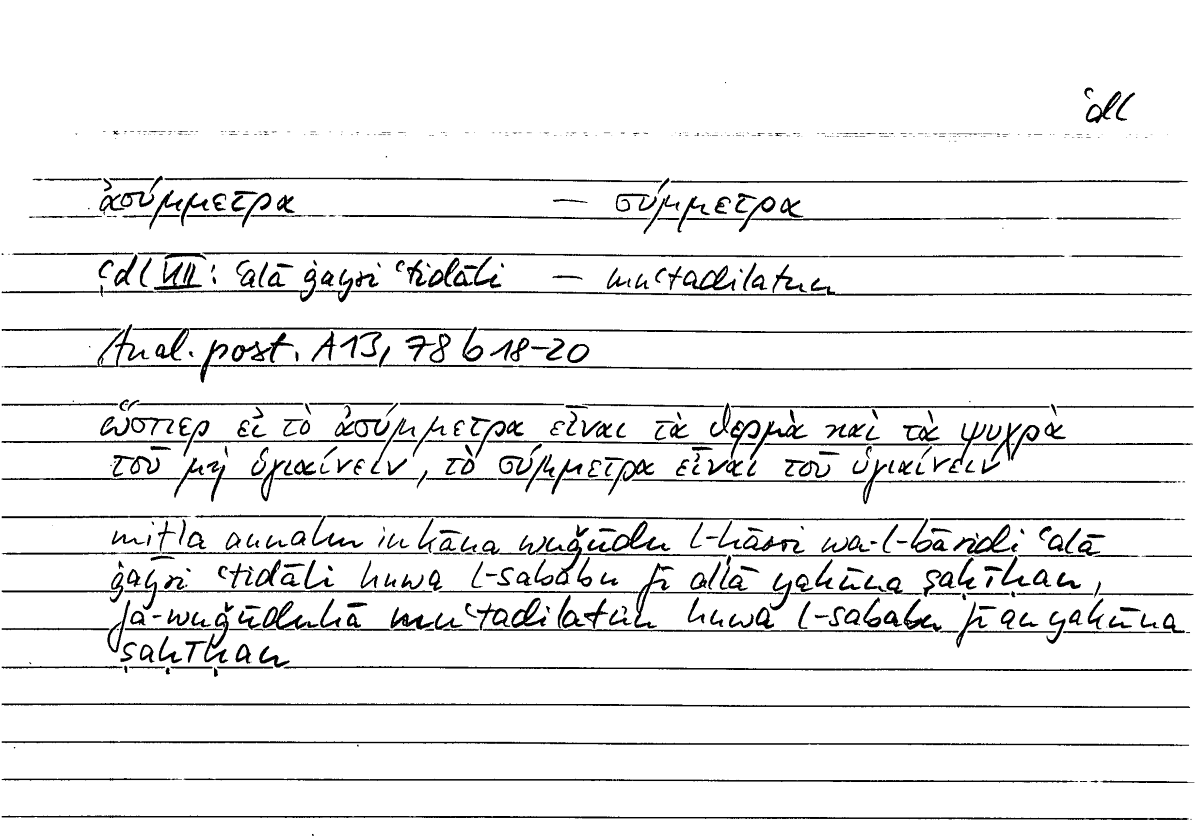 ʿdl
ἀσύμμετρα — σύμμετρα
ʿdl VIII: ʿalā ġayri ʿtidāli — muʿtadilatun
Anal. post. A13, 78 b 18-20
ὥσπερ εἰ τὸ ἀσύμμετρα εἶναι τὰ θερμὰ καὶ τὰ ψυχρὰ
τοῦ μὴ ὑγιαίνειν, τὸ σύμμετρα εἶναι τοῦ ὑγιαίνειν
miṯla annahu in kāna wuǧūdu l-ḥārri wa-l-bāridi ʿalā
ġayri ʿtidāli huwa l-sababu fī allā yakūna ṣaḥīḥan,
fa-wuǧūduhā muʿtadilatun huwa l-sababu fī an yakūna
ṣaḥīḥan